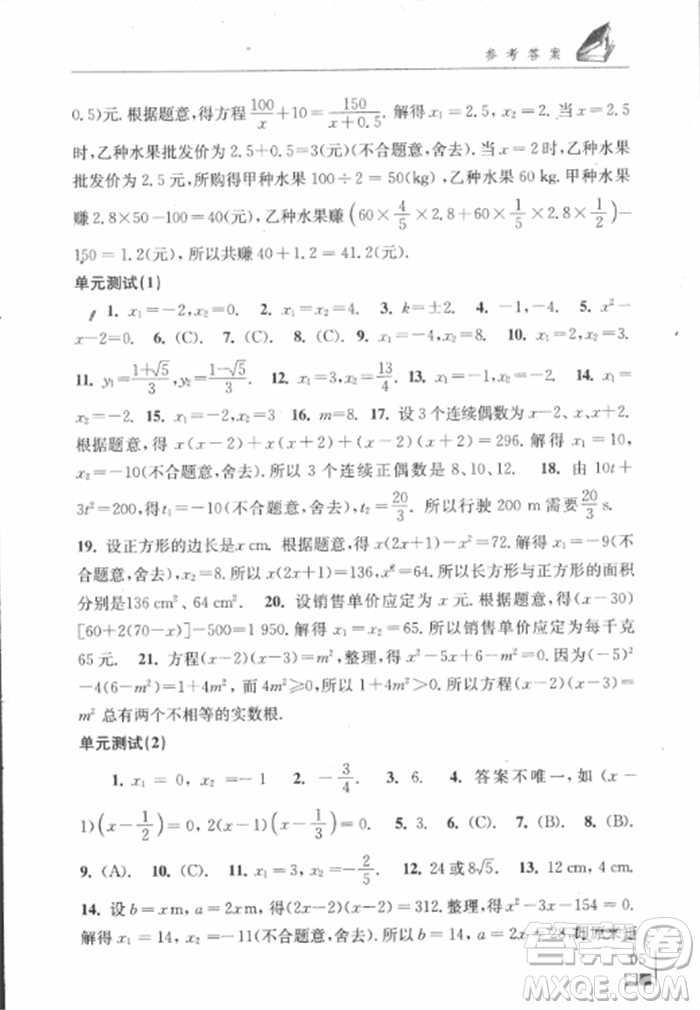 参考答案
0.5)元. 根据题意,得方程 100/x + 10 = 150/(x+0.5). 解得 x₁=2.5, x₂=2. 当 x=2.5
时,乙种水果批发价为 2.5+0.5=3(元)(不合题意,舍去). 当 x=2 时,乙种水果
批发价为 2.5 元,所购得甲种水果 100÷2=50(kg),乙种水果 60 kg. 甲种水果
赚 2.8×50-100=40(元),乙种水果赚 (60×4/5×2.8+60×1/5×2.8×1/2)-
150=1.2(元), 所以共赚 40+1.2=41.2(元).
单元测试(1)
1. x₁=-2, x₂=0. 2. x₁=-2, x₂=4. 3. k=±2. 4. x₁=0, x₂=4. 5. x²-
x-2=0. 6. (C). 7. (C). 8. (C). 9. x₁=-4, x₂=4. 10. x₁=0, x₂=3.
11. y₁=(1+√5)/3, y₂=(1-√5)/3. 12. x₁=3, x₂=13/4. 13. x₁=x₂=-1. 14. x₁=
x₂=-2. 15. x₁=-2, x₂=3 16. m=8. 17. 设 3 个连续偶数为 x-2、x、x+2.
根据题意,得 x(x-2)+x(x+2)+(x-2)(x+2)=296. 解得 x₁=10, x₂=
-10(不合题意,舍去). 所以 3 个连续正偶数是 8、10、12. 18. 由 10t+
3t²=200,得 t₁=-10(不合题意,舍去), t₂=20/3. 所以行驶 200 m 需要 20/3 s.
19. 设正方形的边长是 x cm. 根据题意,得 x(2x+1)-x²=72. 解得 x₁=-9(不
合题意,舍去), x₂=8. 所以 x(2x+1)=136, x²=64. 所以长方形与正方形的面积
分别是136 cm²、64 cm². 20. 设销售单价应定为 x 元. 根据题意,得 (x-30)
[60+2(70-x)]-500=1 950. 解得 x₁=x₂=65. 所以销售单价应定为每千克
65 元. 21. 方程(x-2)(x-3)=m²,整理,得 x²-5x+6-m²=0. 因为(-5)²
-4(6-m²)=1+4m²,而 4m²≥0,所以 1+4m²>0. 所以方程(x-2)(x-3)=
m² 总有两个不相等的实数根.
单元测试(2)
1. x₁=0, x₂=-1 2. -3/4. 3. 6. 4. 答案不唯一,如(x-
1)(x-1/2)=0, (x-1)(x-1/3)=0. 5. 3. 6. (C). 7. (B). 8. (B).
9. (A). 10. (C). 11. x₁=3, x₂=-2/5. 12. 24 或8√5. 13. 12 cm, 4 cm.
14. 设 b=x m, a=(2x-2)m. 得(2x-4)(x-2)=312. 整理,得 x²-3x-154=0.
解得 x₁=14, x₂=-11(不合题意,舍去). 所以 b=14, a=2x-2